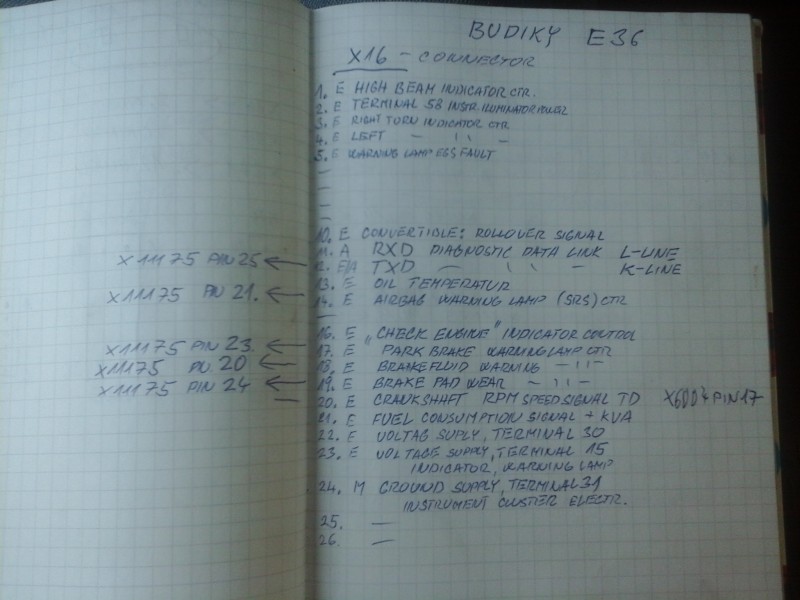 BUDIKY E36
X16 - CONNECTOR
1. E HIGH BEAM INDICATOR CTR.
2. E TERMINAL 58 INSTR. ILUMINATOR POWER
3. E RIGHT TURN INDICATOR CTR
4. E LEFT - '' -
5. E WARNING LAMP EGS FAULT
—
—
—
—
10. E CONVERTIBLE: ROLLOVER SIGNAL
11. A RXD DIAGNOSTIC DATA LINK L-LINE
X11175 PIN 25 ← 12. E/A TXD — '' - K-LINE
13. E OIL TEMPERATUR
X11175 PIN 21. ← 14. E AIRBAG WARNING LAMP (SRS) CTR
—
16. E "CHECK ENGINE" INDICATOR CONTROL
X11175 PIN 23. ← 17. E PARK BRAKE WARNING LAMP CTR
X11175 PIN. 20 ← 18. E BRAKEFLUID WARNING -''-
X11175 PIN 24 ← 19. E BRAKE PAD WEAR -''-
— 20. E CRANKSHAFT RPM SPEED SIGNAL TD X6004 PIN 17
21. E FUEL CONSUMPTION SIGNAL + KVA
22. E VOLTAG SUPLY, TERMINAL 30
23. E VOLTAGE SUPPLY, TERMINAL 15
INDICATOR, WARNING LAMP
24. M GROUND SUPPLY, TERMINAL 31
INSTRUMENT CLUSTER ELECTR.
25. —
26. —